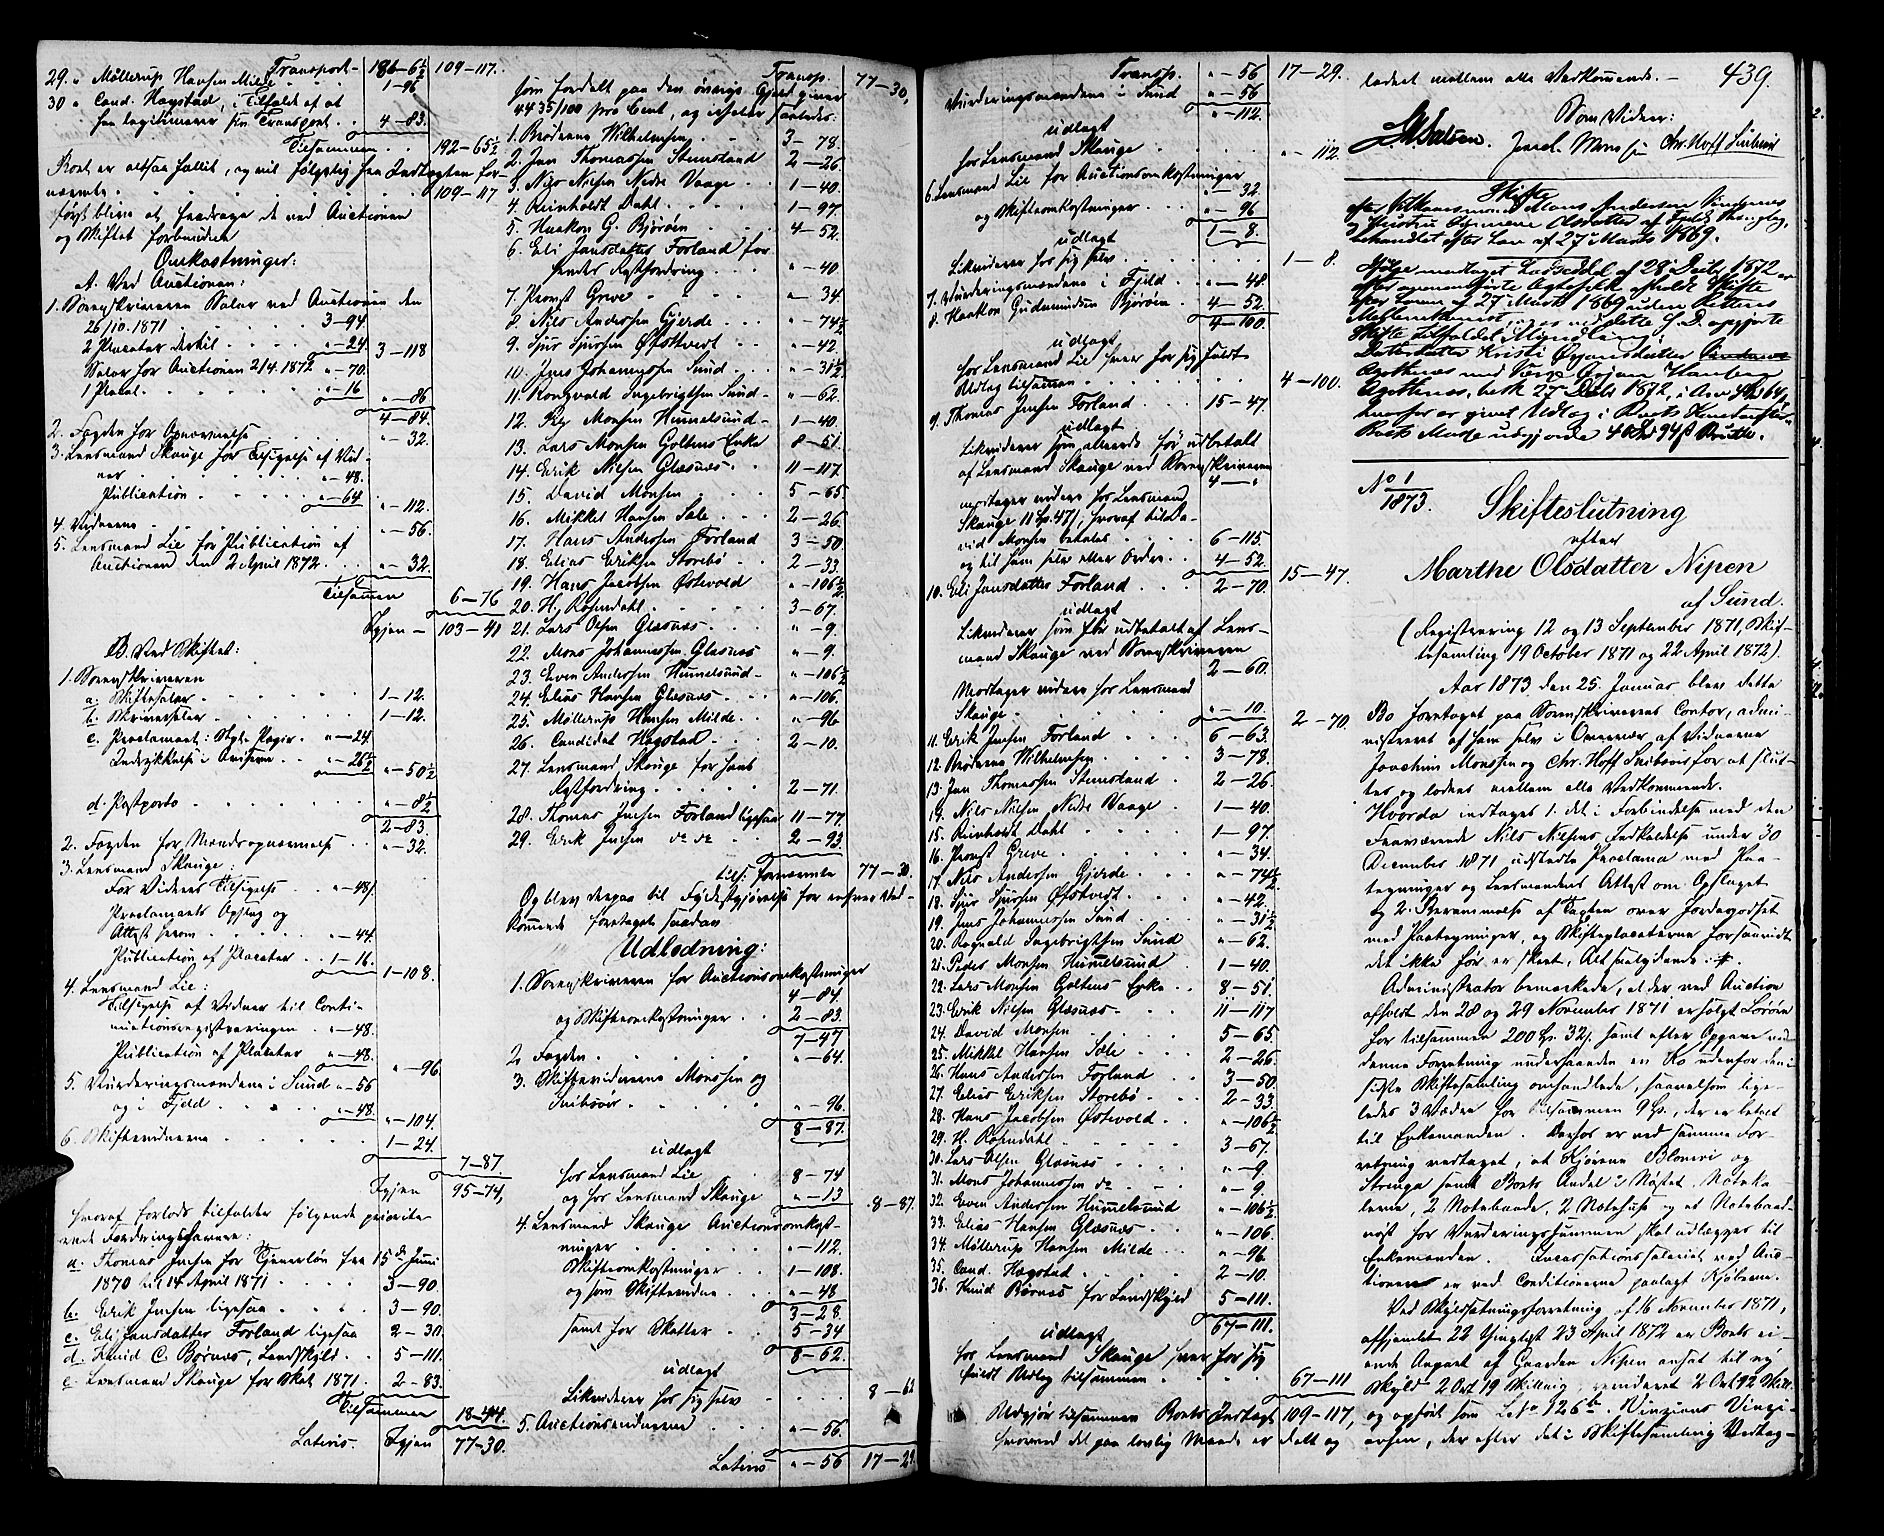 Transport 186-6½ 109-117.
29. " Møllerup Hansen Milde 1-96
30 " Cand. Hagstad, i Tilfælde af at
han legitimerer sin Transport. 4-83.
Tilsammen 192-65½
Boet er altsaa fallit, og vil følgelig fra Indtægten for-
nævnte 109-117
først blive at fradrage de ved Auctionen
og Skiftet forbundne
Omkostninger:
A. Ved Auctionen:
1. Sorenskriveren Salær ved Auctionen den
26/10. 1871 3-94.
2 Placater dertil "-24. 3-118
Salær for Auctionen 2/4. 1872 "-70.
1 Placat "-16 "-86
4-84.
2. Fogden for Opnævnelse "-32.
3. Lensmand Skauge for Tilsigelse af Vid-
ner "-48.
Publication "-64. "-112.
4. Vidnerne "-56
5. Lensmand Lie for Publication af
Auctionen den 2 April 1872 "-32.
Tilsammen 6-76
Igjen 103-41
B. Ved Skiftet:
1. Sorenskriveren
a. Skiftesalær 1-12.
b. Skriversalær 1-12.
c. Proclamaet: Stpl. Papir "-24
Indrykkelse i Aviserne "-26½ "-50½
d. Postporto "-8½
2-83.
2. Fogden for Mændsopnævnelse "-32.
3. Lensmand Skauge:
For Vidners Tilsigelse "-48.
Proclamaets Opslag og
Attest herom "-44.
Publication af Placater 1-16. 1-108.
4. Lensmand Lie:
Tilsigelse af Vidner til Conti-
nuationsregistreringen "-48.
Publication af Placater "-48. "-96.
5. Vurderingsmændene i Sund "-56
og i Fjeld "-48. "-104.
6. Skiftevidnerne 1-24.
7-87.
Igjen 95-74,
hvoraf forlods tilfalder følgende priorite-
rede Fordringshavere:
a. Thomas Jensen for Tjenerløn fra 15de Juni
1870 til 14 April 1871 3-90.
b. Erik Jensen ligesaa 3-90.
c. Eli Jansdatter Forland ligesaa 2-30
d. Knud C. Børnæs, Landskyld 5-111.
e. Lensmand Skauge for Skat 1871 2-83.
Tilsammen 18-44.
Lateris. Igjen 77-30.
Transp. 77-30,
som fordelt paa den øvrige Gjeld giver
44 35/100 pro Cent, og isfølge saaledes:
1. Brødrene Wilhelmsen 3-78.
2. Jan Thomassen Stensland 2-26
3. Nils Nilsen Nedre Vaage 1-40.
4. Reinholdt Dahl 1-97
5. Haakon G. Bjørøen 4-52.
6. Eli Jansdatter Forland for
hendes Restfordring "-40
7. Provst Greve "-34.
8. Nils Anderssen Gjerde "-74½
9. Sjur Sjursen Østtvedt "-42.
10. Jens Johannessen Sund "-31½
11. Rongvald Ingebrigtsen Sund "-62.
12. Peder Monsen Hummelsund 1-40.
13. Lars Monsen Goltens Enke 8-51.
14. Erik Nilsen Glæsnæs 11-117.
15. David Monsen 5-65.
16. Mikkel Hansen Sæle 2-26
17. Hans Andersen Forland 3-50
18. Elias Eriksen Storebø 2-33.
19. Hans Jacobsen Østevold "-106½
20. H. Rosendahl 3-67.
21. Lars Olsen Glæsnæs "-9.
22. Mons Johannessen Glæsnæs "-9.
23. Even Anderssen Hummelsund "-106½
24. Elias Hansen Glæsnæs "-106.
25. Møllerup Hansen Milde "-96
26. Candidat Hagstad 2-10.
27. Lensmand Skauge for hans
Restfordring 2-71.
28. Thomas Jensen Forland ligesaa 11-77.
29. Erik Jensen do do 2-93
tils. fornævnte 77-30.
Og blev derpaa til Fyldestgjørelse for enhver Ved-
kommende foretaget saadan
Udlodning:
1. Sorenskriveren for Auctionsomkostninger
4-84.
og Skifteomkostninger 2-83
7-47
2. Fogden "-64.
3. Skiftevidnerne Monssen og
Snibsøir "-96.
8-87.
udlagt
hos Lensmand Lie 8-74
og hos Lensmand Skauge "-13 8-87.
4. Lensmand Skauge Auctionsomkost-
ninger "-112.
Skifteomkostninger 1-108.
og som Skiftevidne "-48
3-28
samt for Skatter 5-34
8-62.
udlagt
Likviderer hos sig selv 8-62
5. Auctionsvidnerne "-56.
Lateris "-56 17-29.
Transp. "-56 17-29.
Vurderingsmændene i Sund "-56
"-112.
udlagt
hos Lensmand Skauge "-112.
6. Lensmand Lie for Auctionsomkostninger
"-32.
og Skifteomkostninger "-96.
1-8.
udlagt
Likviderer hos sig selv 1-8.
7. Vurderingsmændene i Fjeld "-48.
8. Haakon Gudmundsen Bjørøen 4-52.
4-100.
udlagt
hos Lensmand Lie hver for sig fuldt
Udlæg tilsammen 4-100.
9. Thomas Jensen Forland 15-47.
udlagt
Likviderer som allerede før udbetalt
af Lensmand Skauge ved Sorenskriveren
4-"
modtager videre hos Lensmand
Skauge 11 Sp. 47ß, hvoraf til Da-
vid Monsen betales 6-115
og til ham selv eller Ordre 4-52.
15-47.
10. Eli Jansdatter Forland 2-70.
udlagt
Likviderer som før udbetalt af Lens-
mand Skauge ved Sorenskriveren
2-60.
Modtager videre hos Lensmand
Skauge "-10. 2-70.
11. Erik Jensen Forland 6-63.
12. Brødrene Wilhelmsen 3-78.
13. Jan Thomassen Stensland 2-26
14. Nils Nilsen Nedre Vaage 1-40.
15. Reinholdt Dahl 1-97.
16. Provst Greve "-34.
17. Nils Anderssen Gjerde "-74½
18. Sjur Sjursen Østtvedt "-42.
19. Jens Johannessen Sund "-31½
20. Rognald Ingebrigtsen Sund "-62.
21. Peder Monsen Hummelsund 1-40.
22. Lars Monsen Goltens Enke 8-51.
23. Erik Nilsen Glæsnæs 11-117
24. David Monsen 5-65.
25. Mikkel Hansen Sæle 2-26
26. Hans Anderssen Forland 3-50.
27. Elias Eriksen Storebø 2-33.
28. Hans Jacobsen Østevold "-106½
29. H. Rosendahl 3-67.
30. Lars Olsen Glæsnæs "-9
31. Mons Johannessen do "-9.
32. Even Anderssen Hummelsund "-106½
33. Elias Hansen Glæsnæs "-106.
34. Møllerup Hansen Milde "-96
35. Cand. Hagstad 2-10.
36. Knud Børnæs for Landskyld 5-111.
67-111.
udlagt
hos Lensmand Skauge hver for sig
fuldt Udlæg tilsammen 67-111
Udgjør tilsammen Boets Indtægt 109-117,
hvorved det paa lovlig Maade er delt og
loddet mellem alle Vedkommende. 439.
Som Vidner:
Joach. Monssen Chr. Hoff Snibsøir
Skifte
efter Selveiersmand Mons Andersen
og Hustru Olsdatter af Fjeld Thinglag,
behandlet efter Lov af 27 Marts 1869.
Ifølge modtaget Lodseddel af 28 Decbr. 1872 er
efter ovenanførte Ægtefolk afholdt Skifte
efter Loven af 27 Marts 1869 uden Rettens
Mellemkomst, og ved dette S. D. opgjorte
Skifte tilfaldet Myndling
Datterdatter Kristi Ørjansdatter
Agotnes ved Værge Ørjan
Agotnes, bek. 27 Decbr. 1872, i Arv
hvorfor er givet Udlæg i Boets
Boets Masse udgjorde 40 Sp. 94 ß Brutto.
No 1/1873. Skifteslutning
efter
Marthe Olsdatter Nipen
af Sund.
(Registrering 12 og 13 September 1871, Skif-
tesamling 19 October 1871 og 22 April 1872).
Aar 1873 den 25. Januar blev dette
Bo foretaget paa Sorenskriverens Contor, admi-
nistreret af ham selv i Overvær af Vidnerne
Joachim Monssen og Chr. Hoff Snibsøir for at slut-
tes og loddes mellem alle Vedkommende.
Hvorda indtages 1. det i Forbindelse med den
Fraværende Nils Nilsens Indkaldelse under 30
December 1871 udstedte Proclama med Paa-
tegninger og Lensmandens Attest om Opslaget
og 2. Berammelse af Tægten over Jordegodset
med Paategninger, og Skifteplacaterne forsaavidt
det ikke før er skeet, Alt saalydende: #.
Administrator bemærkede, at der ved Auction
afholdt den 28 og 29 November 1871 er solgt Løsøre
for tilsammen 200 Sp. 32ß samt efter Opgave ved
denne Forretning underhaanden en Ko udenfor den i
sidste Skiftesamling omhandlede, saavelsom lige-
ledes 3 Væder for tilsammen 9 Sp., der er betalt
til Enkemanden. Derhos er ved samme For-
retning vedtaget, at Kjørene Blomvi og
Stringa samt Boets Andel i Nøstet, Notkæ-
lerne, 2 Notebaade, 2 Notehuse og et Notebaad-
nøst for Vurderingssummen skal udlægges til
Enkemanden. Incassationssalæriet ved Auc-
tionen er ved Conditionerne paalagt Kjøberne.
Ved Skyldsætningsforretning af 16 November 1871,
afhjemlet 22 Thinglyst 23 April 1872 er Boets ei-
ende Anpart af Gaarden Nipen ansat til ny
Skyld 2 Ort 19 Skilling, revideret 2 Ort 92 Skill.
og opført som Løbeno 126b. Nipen,
der efter det i Skiftesamling Vedtag-